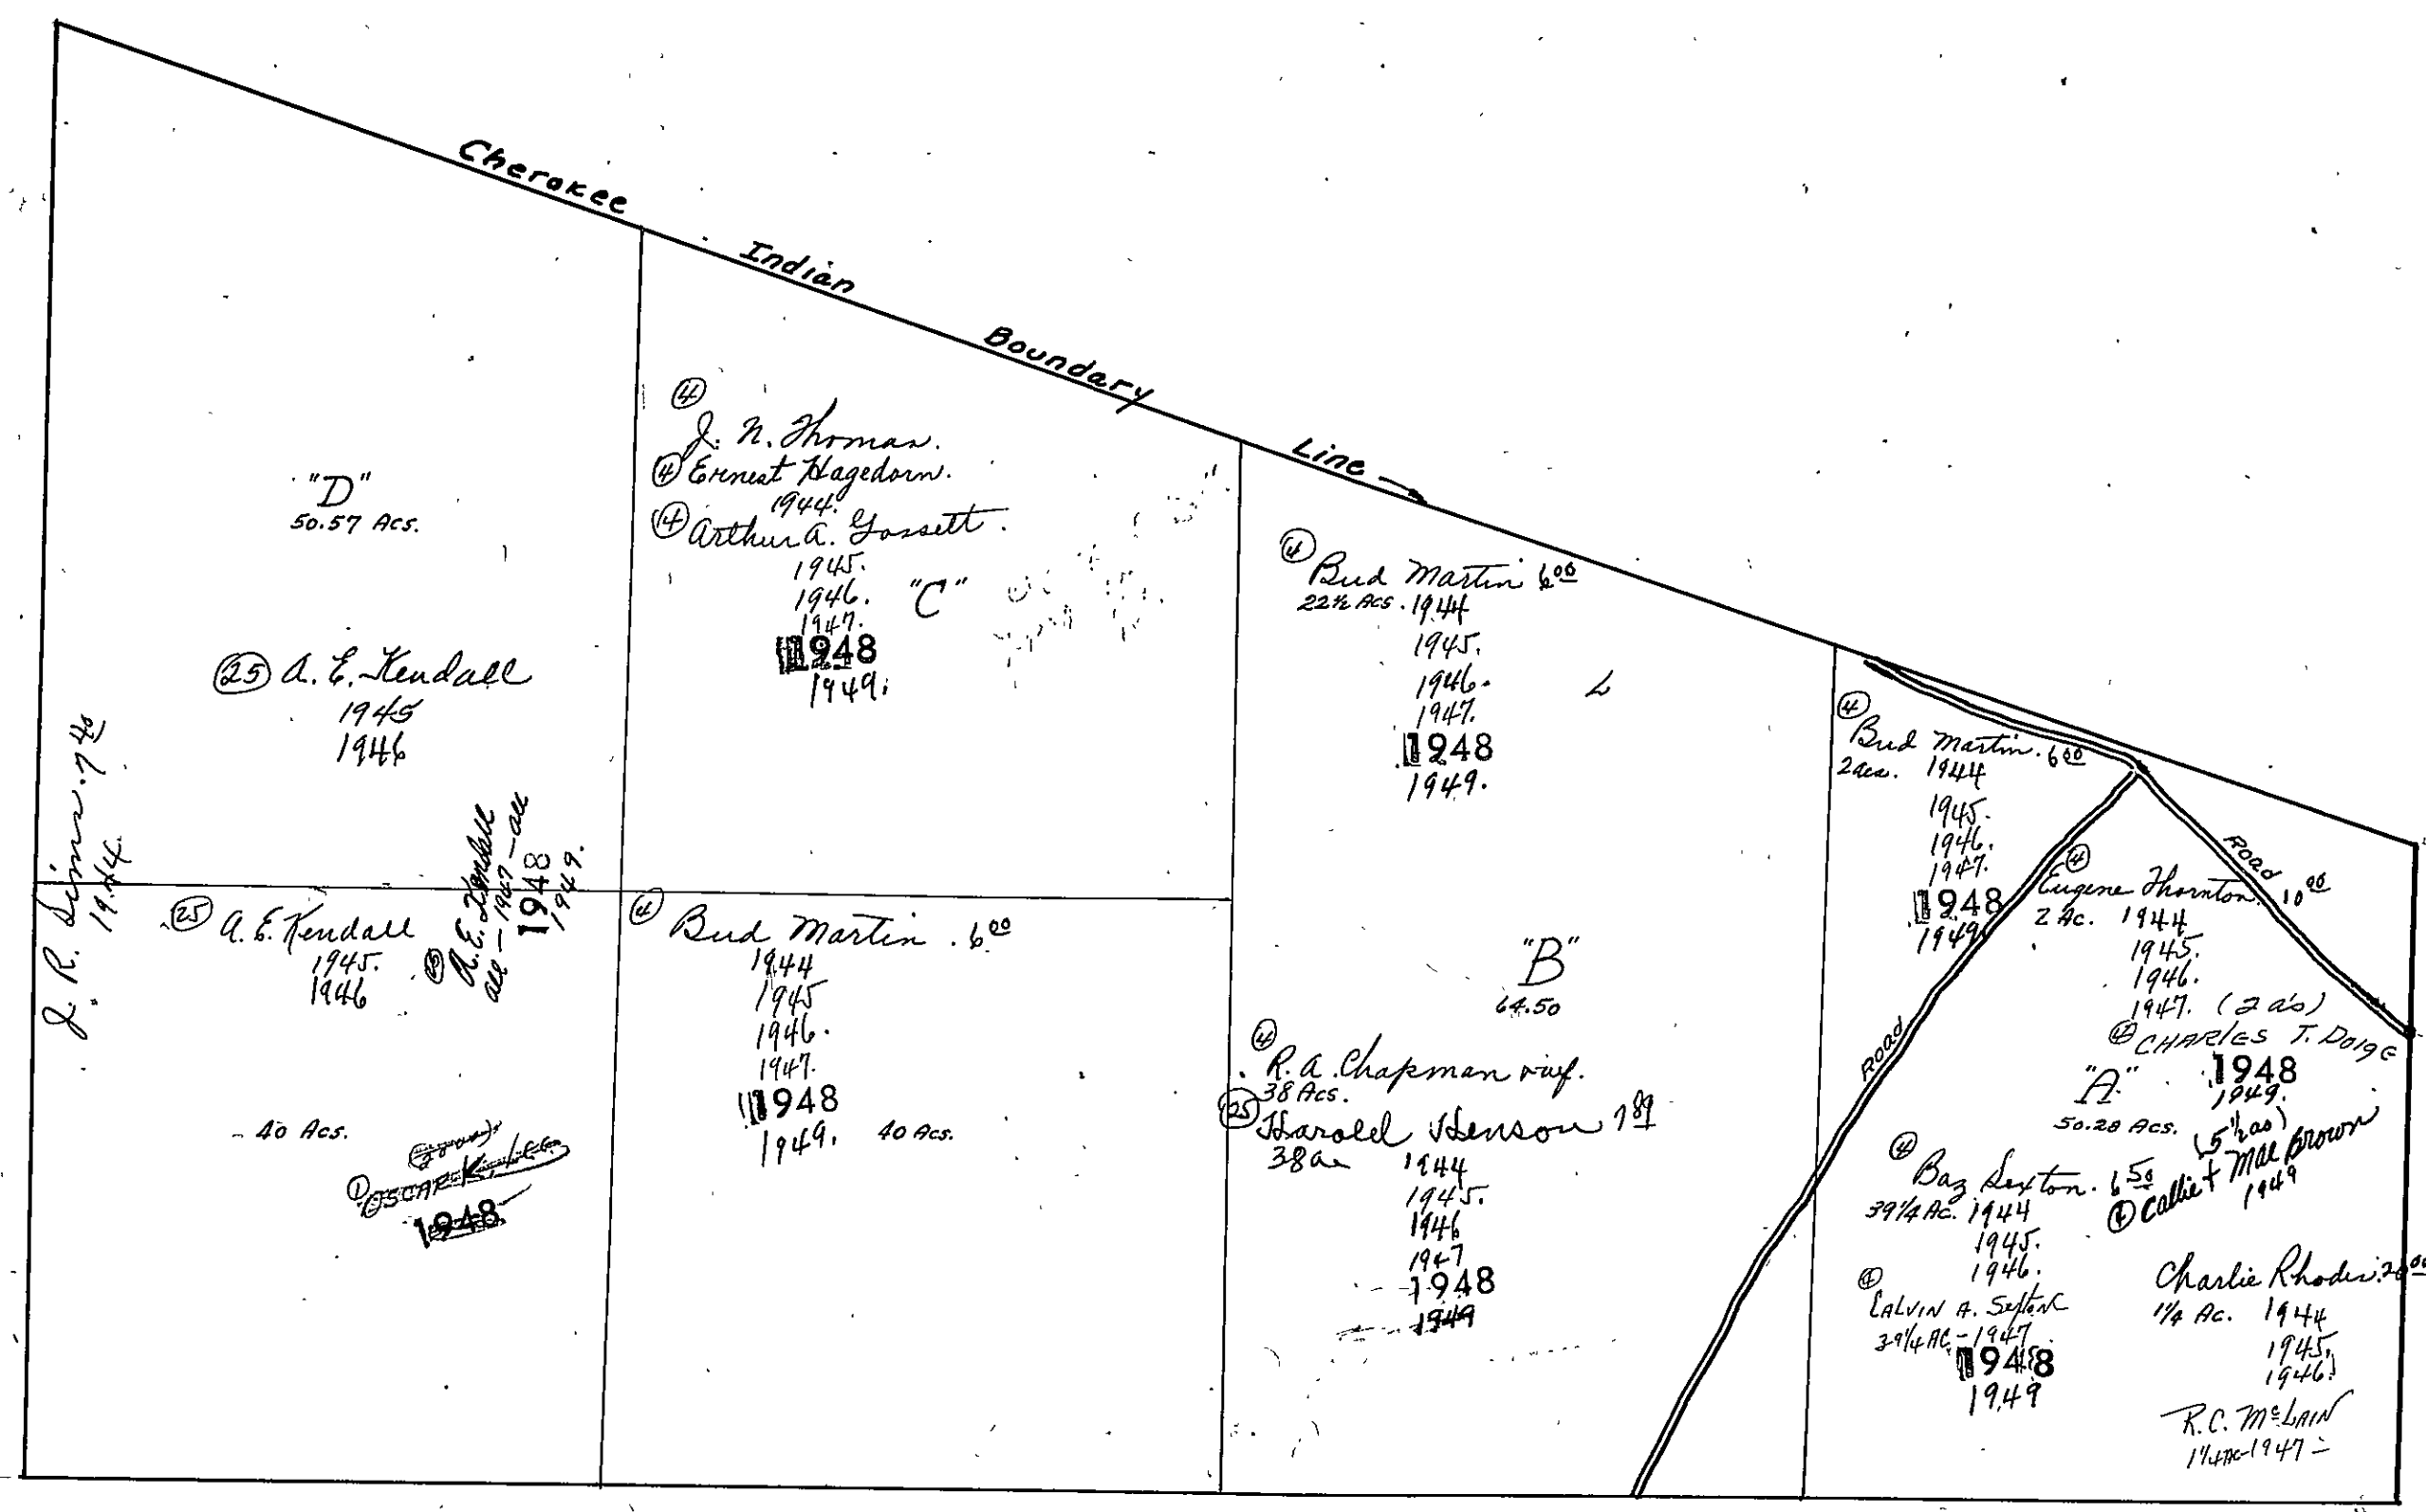 Cherokee Indian Boundary Line
"D"
50.57 Acs.
(25) A. E. Kendall
1945
1946
J. R. Sims. 7 40
1944.
A. E. Kendall
all - 1947 - all
1948
1949.
(25) A. E. Kendall
1945.
1946
- 40 Acs.
(1) OSCAR K. Lee
1948
(4)
J. N. Thomas.
(4) Ernest Hagedorn.
1944.
(14) Arthur A. Gossett.
1945.
1946. "C"
1947.
1948
1949.
(4) Bud Martin . 6 00
1944
1945
1946.
1947.
1948
1949. 40 Acs.
(4) Bud Martin 6 00
22 1/2 Acs. 1944
1945.
1946.
1947.
1948
1949.
"B"
64.50
(4)
R. A. Chapman
38 Acs.
(25) Harold Henson 7 89
38 a. 1944
1945.
1946
1947
1948
1949
(4)
Bud Martin. 6 00
2 acs. 1944
1945.
1946.
1947.
1948
1949
Road
Road
(4)
Eugene Thornton. 10 00
2 Ac. 1944
1945.
1946.
1947. (2 a's)
(4) CHARLES T. Doige
1948
1949.
"A"
50.28 Acs.
(5 1/2 as)
(1) Callie & Mae Brown
1949
(4) Baz Sexton. 6 50
39 1/4 Ac. 1944
1945.
1946.
(4)
CALVIN A. Sexton
39 1/4 AC - 1947
1948
1949
Charlie Rhodes. 20 00
1 1/4 Ac. 1944
1945,
1946.
R. C. McLAIN
1 1/4 AC - 1947 -